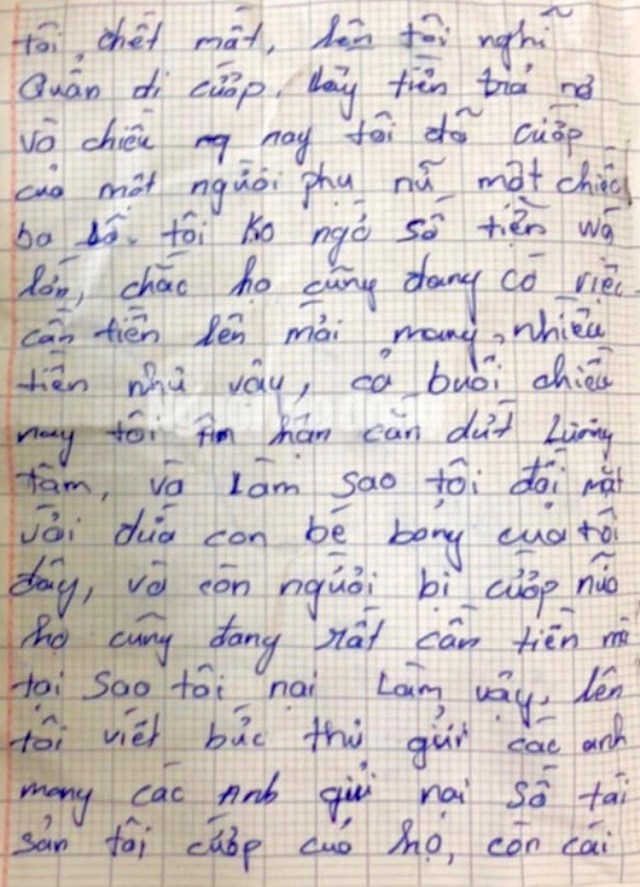 tôi, chết mất, lên tôi nghĩ
Quẩn đi cướp, lấy tiền trả nợ
và chiều nay tôi đã cướp
của một người phụ nữ một chiếc
ba lô. tôi ko ngờ số tiền wá
lớn, chắc họ cũng đang có việc
cần tiền lên mới mang, nhiều
tiền như vậy, cả buổi chiều
nay tôi ân hận cắn dứt Lương
tâm, và Làm sao tôi đối mặt
với đứa con bé bỏng của tôi
đây, và còn người bị cướp nữa
họ cũng đang rất cần tiền mà
tại sao tôi nại Làm vậy, lên
tôi viết bức thư gửi các anh
mong các Anh gửi nại số tài
sản tôi cướp của họ, còn cái